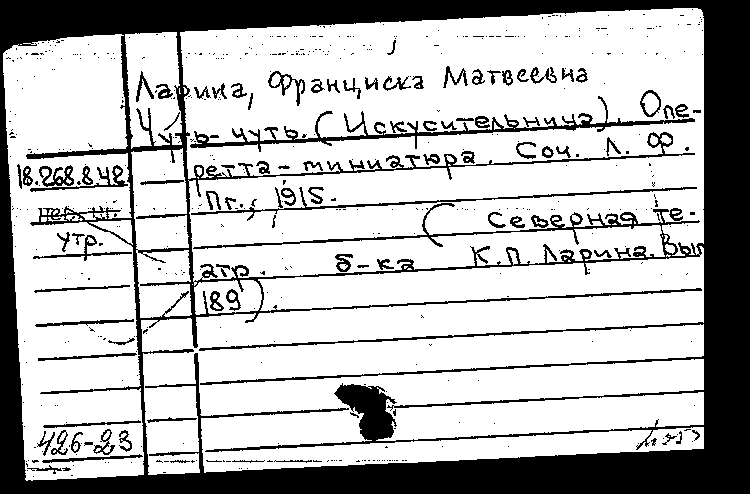 Ларина, Франциска Матвеевна
Чуть-чуть. (Искусительница). Опе-
18.268.8.42 ретта-миниатюра. Соч. Л. Ф.
Пг., 1915.
(Северная те-
утр.
атр. б-ка К.П. Ларина. Вып
189).
426-23